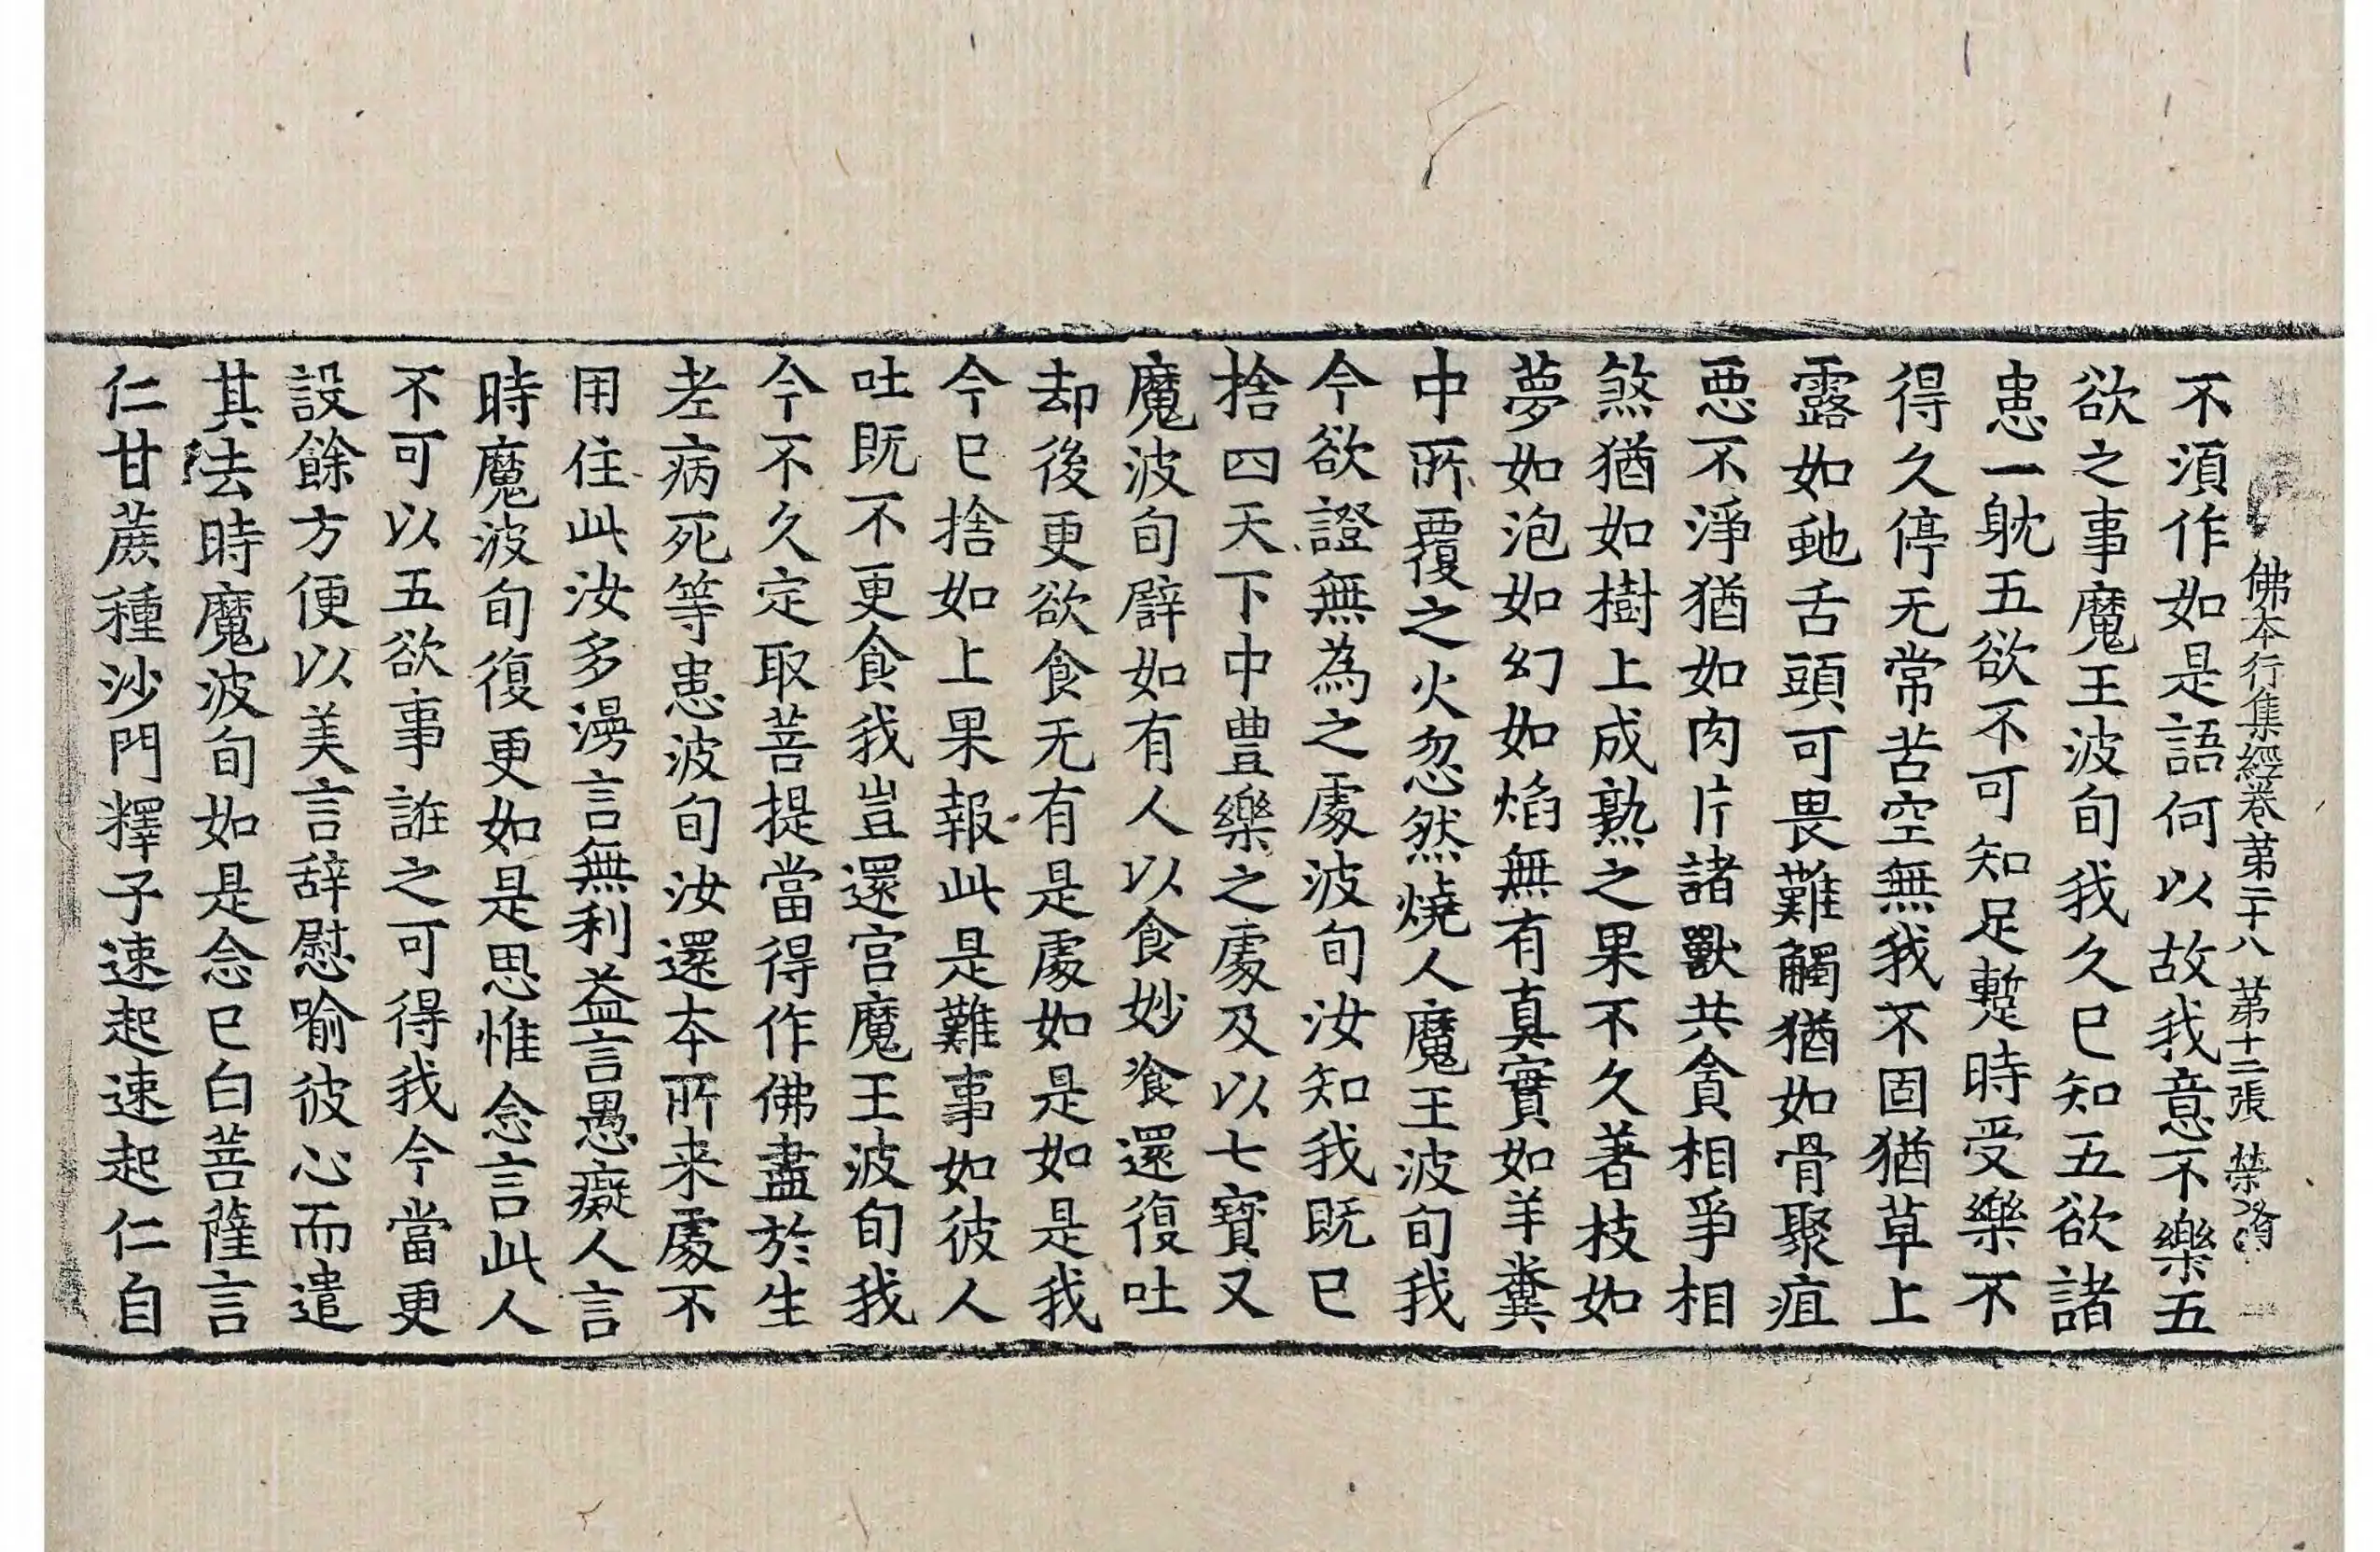 佛本行集經卷第二十八 第十二張 榮
不湏作如是語何以故我意不樂五
欲之事魔王波旬我久已知五欲諸
患一躭五欲不可知足蹔時受樂不
得久停无常苦空無我不固猶草上
露如虵舌頭可畏難觸猶如骨聚疽
惡不淨猶如肉片諸獸共貪相爭相
煞猶如樹上成熟之果不久著枝如
夢如泡如幻如焰無有真實如羊糞
中所覆之火忽然燒人魔王波旬我
今欲證無為之處波旬汝知我既已
捨四天下中豊樂之處及以七寶又
魔波旬辟如有人以食妙飡還復吐
却後更欲食无有是處如是如是我
今已捨如上果報此是難事如彼人
吐既不更食我豈還宮魔王波旬我
今不久定取菩提當得作佛盡於生
老病死等患波旬汝還本所来處不
用住此汝多漫言無利益言愚癡人言
時魔波旬復更如是思惟念言此人
不可以五欲事誑之可得我今當更
設餘方便以美言辞慰喻彼心而遣
其去時魔波旬如是念已白菩薩言
仁甘蔗種沙門釋子速起速起仁自